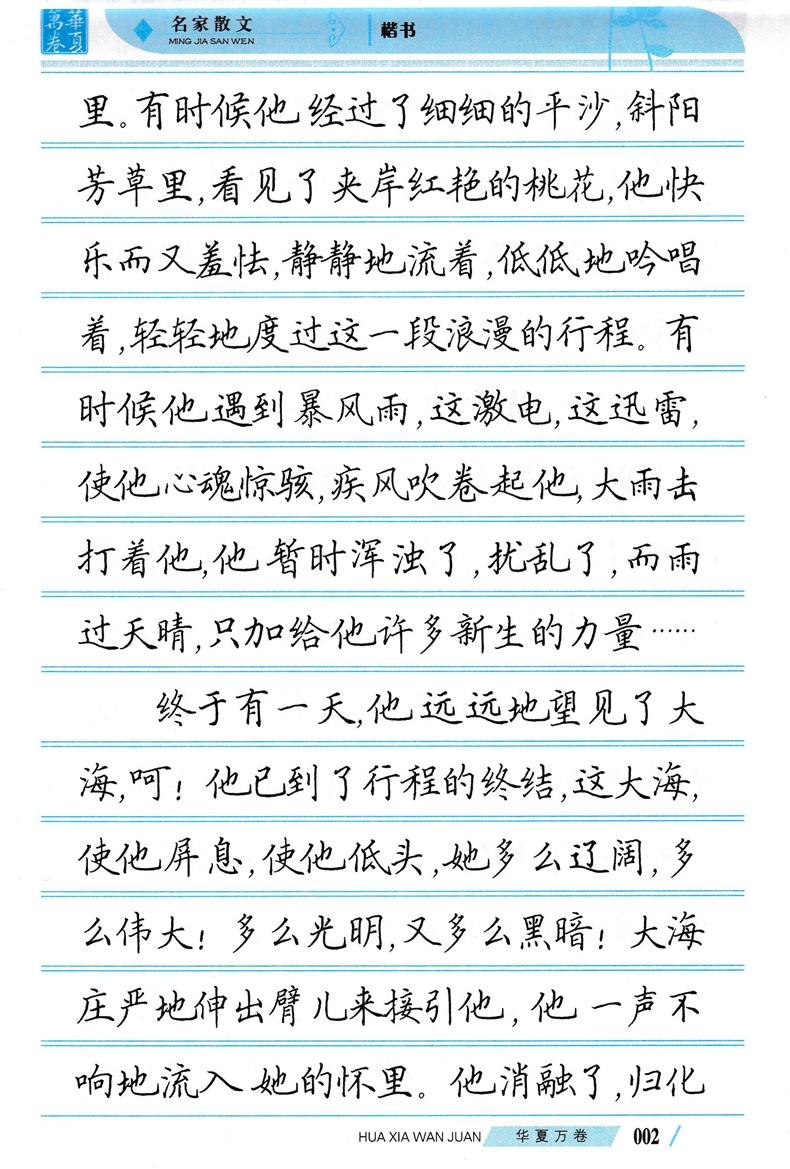 華夏萬卷
名家散文
MING JIA SAN WEN
楷书
里。有时候他经过了细细的平沙,斜阳
芳草里,看见了夹岸红艳的桃花,他快
乐而又羞怯,静静地流着,低低地吟唱
着,轻轻地度过这一段浪漫的行程。有
时候他遇到暴风雨,这激电,这迅雷,
使他心魂惊骇,疾风吹卷起他,大雨击
打着他,他暂时浑浊了,扰乱了,而雨
过天晴,只加给他许多新生的力量……
终于有一天,他远远地望见了大
海,呵!他已到了行程的终结,这大海,
使他屏息,使他低头,她多么辽阔,多
么伟大!多么光明,又多么黑暗!大海
庄严地伸出臂儿来接引他,他一声不
响地流入她的怀里。他消融了,归化
HUA XIA WAN JUAN 华夏万卷 002